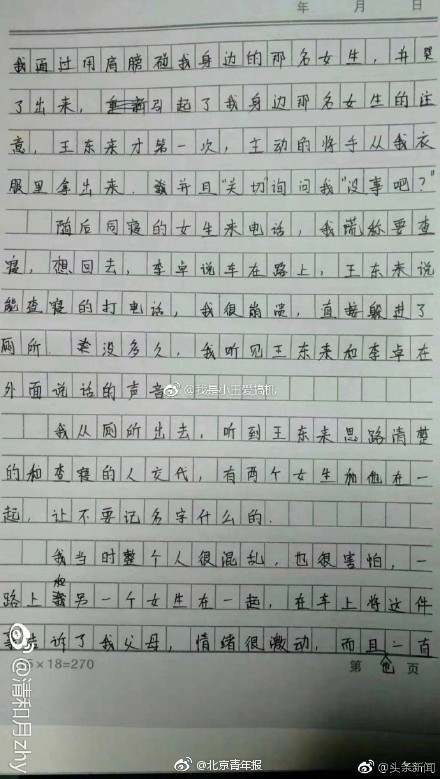 年 月 日
我通过用肩膀碰我身边的那名女生,并哭
了出来,引起了我身边那名女生的注
意,王东来才第一次,主动的将手从我衣
服里拿出来.并且“关切”询问我“没事吧?”
随后同寝的女生来电话,我谎称要查
寝,想回去,李卓说车在路上,王东来说
能查寝的打电话,我很崩溃,直接躲进了
厕所.没多久,我听见王东来和李卓在
外面说话的声音
@我是小王爱搞机
我从厕所出去,听到王东来思路清楚
的和查寝的人交代,有两个女生和他在一
起,让不要记名字什么的.
我当时整个人很混乱,也很害怕,一
路上和另一个女生在一起,在车上将这件
事告诉了我父母,情绪很激动,而且一直
×18=270
第 页
@清和月zhy
@北京青年报
@头条新闻